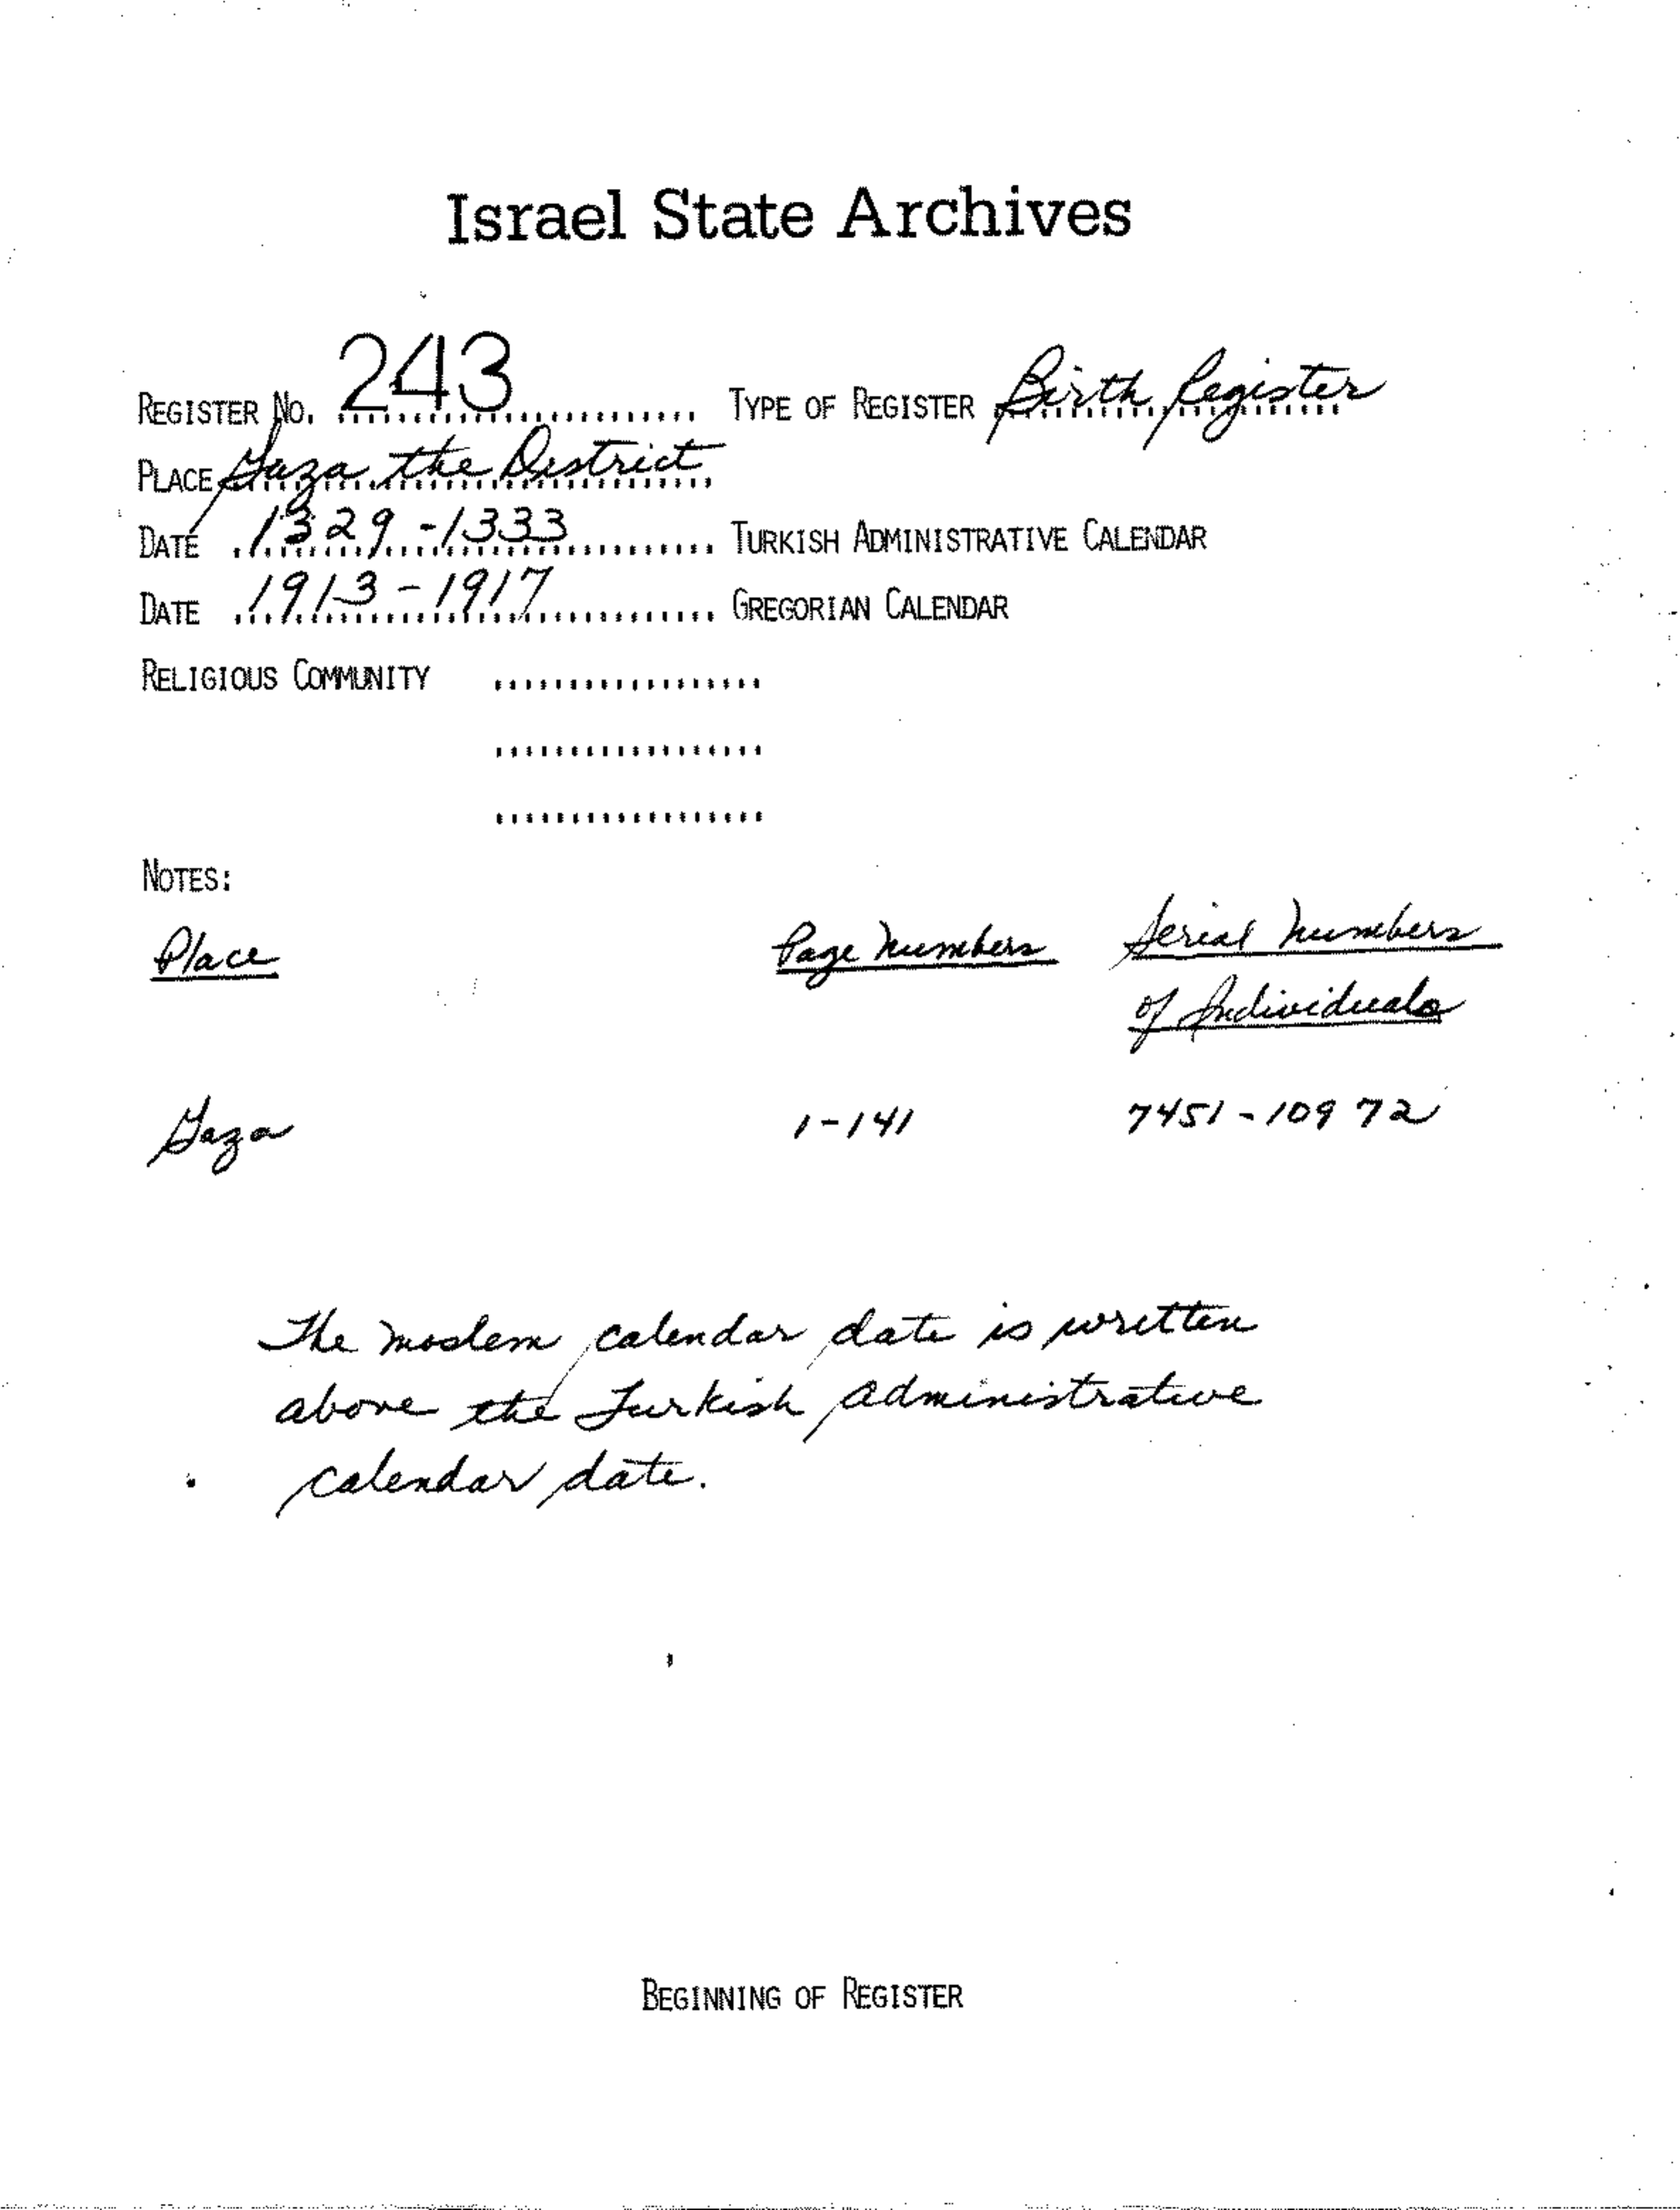 Israel State Archives
REGISTER NO. 243 TYPE OF REGISTER Birth Register
PLACE Gaza the District
DATE 1329-1333 TURKISH ADMINISTRATIVE CALENDAR
DATE 1913-1917 GREGORIAN CALENDAR
RELIGIOUS COMMUNITY
NOTES:
Place Page Numbers Serial Numbers
of Individuals
Gaza 1-141 7451-10972
The moslem calendar date is written
above the Turkish administrative
calendar date.
BEGINNING OF REGISTER